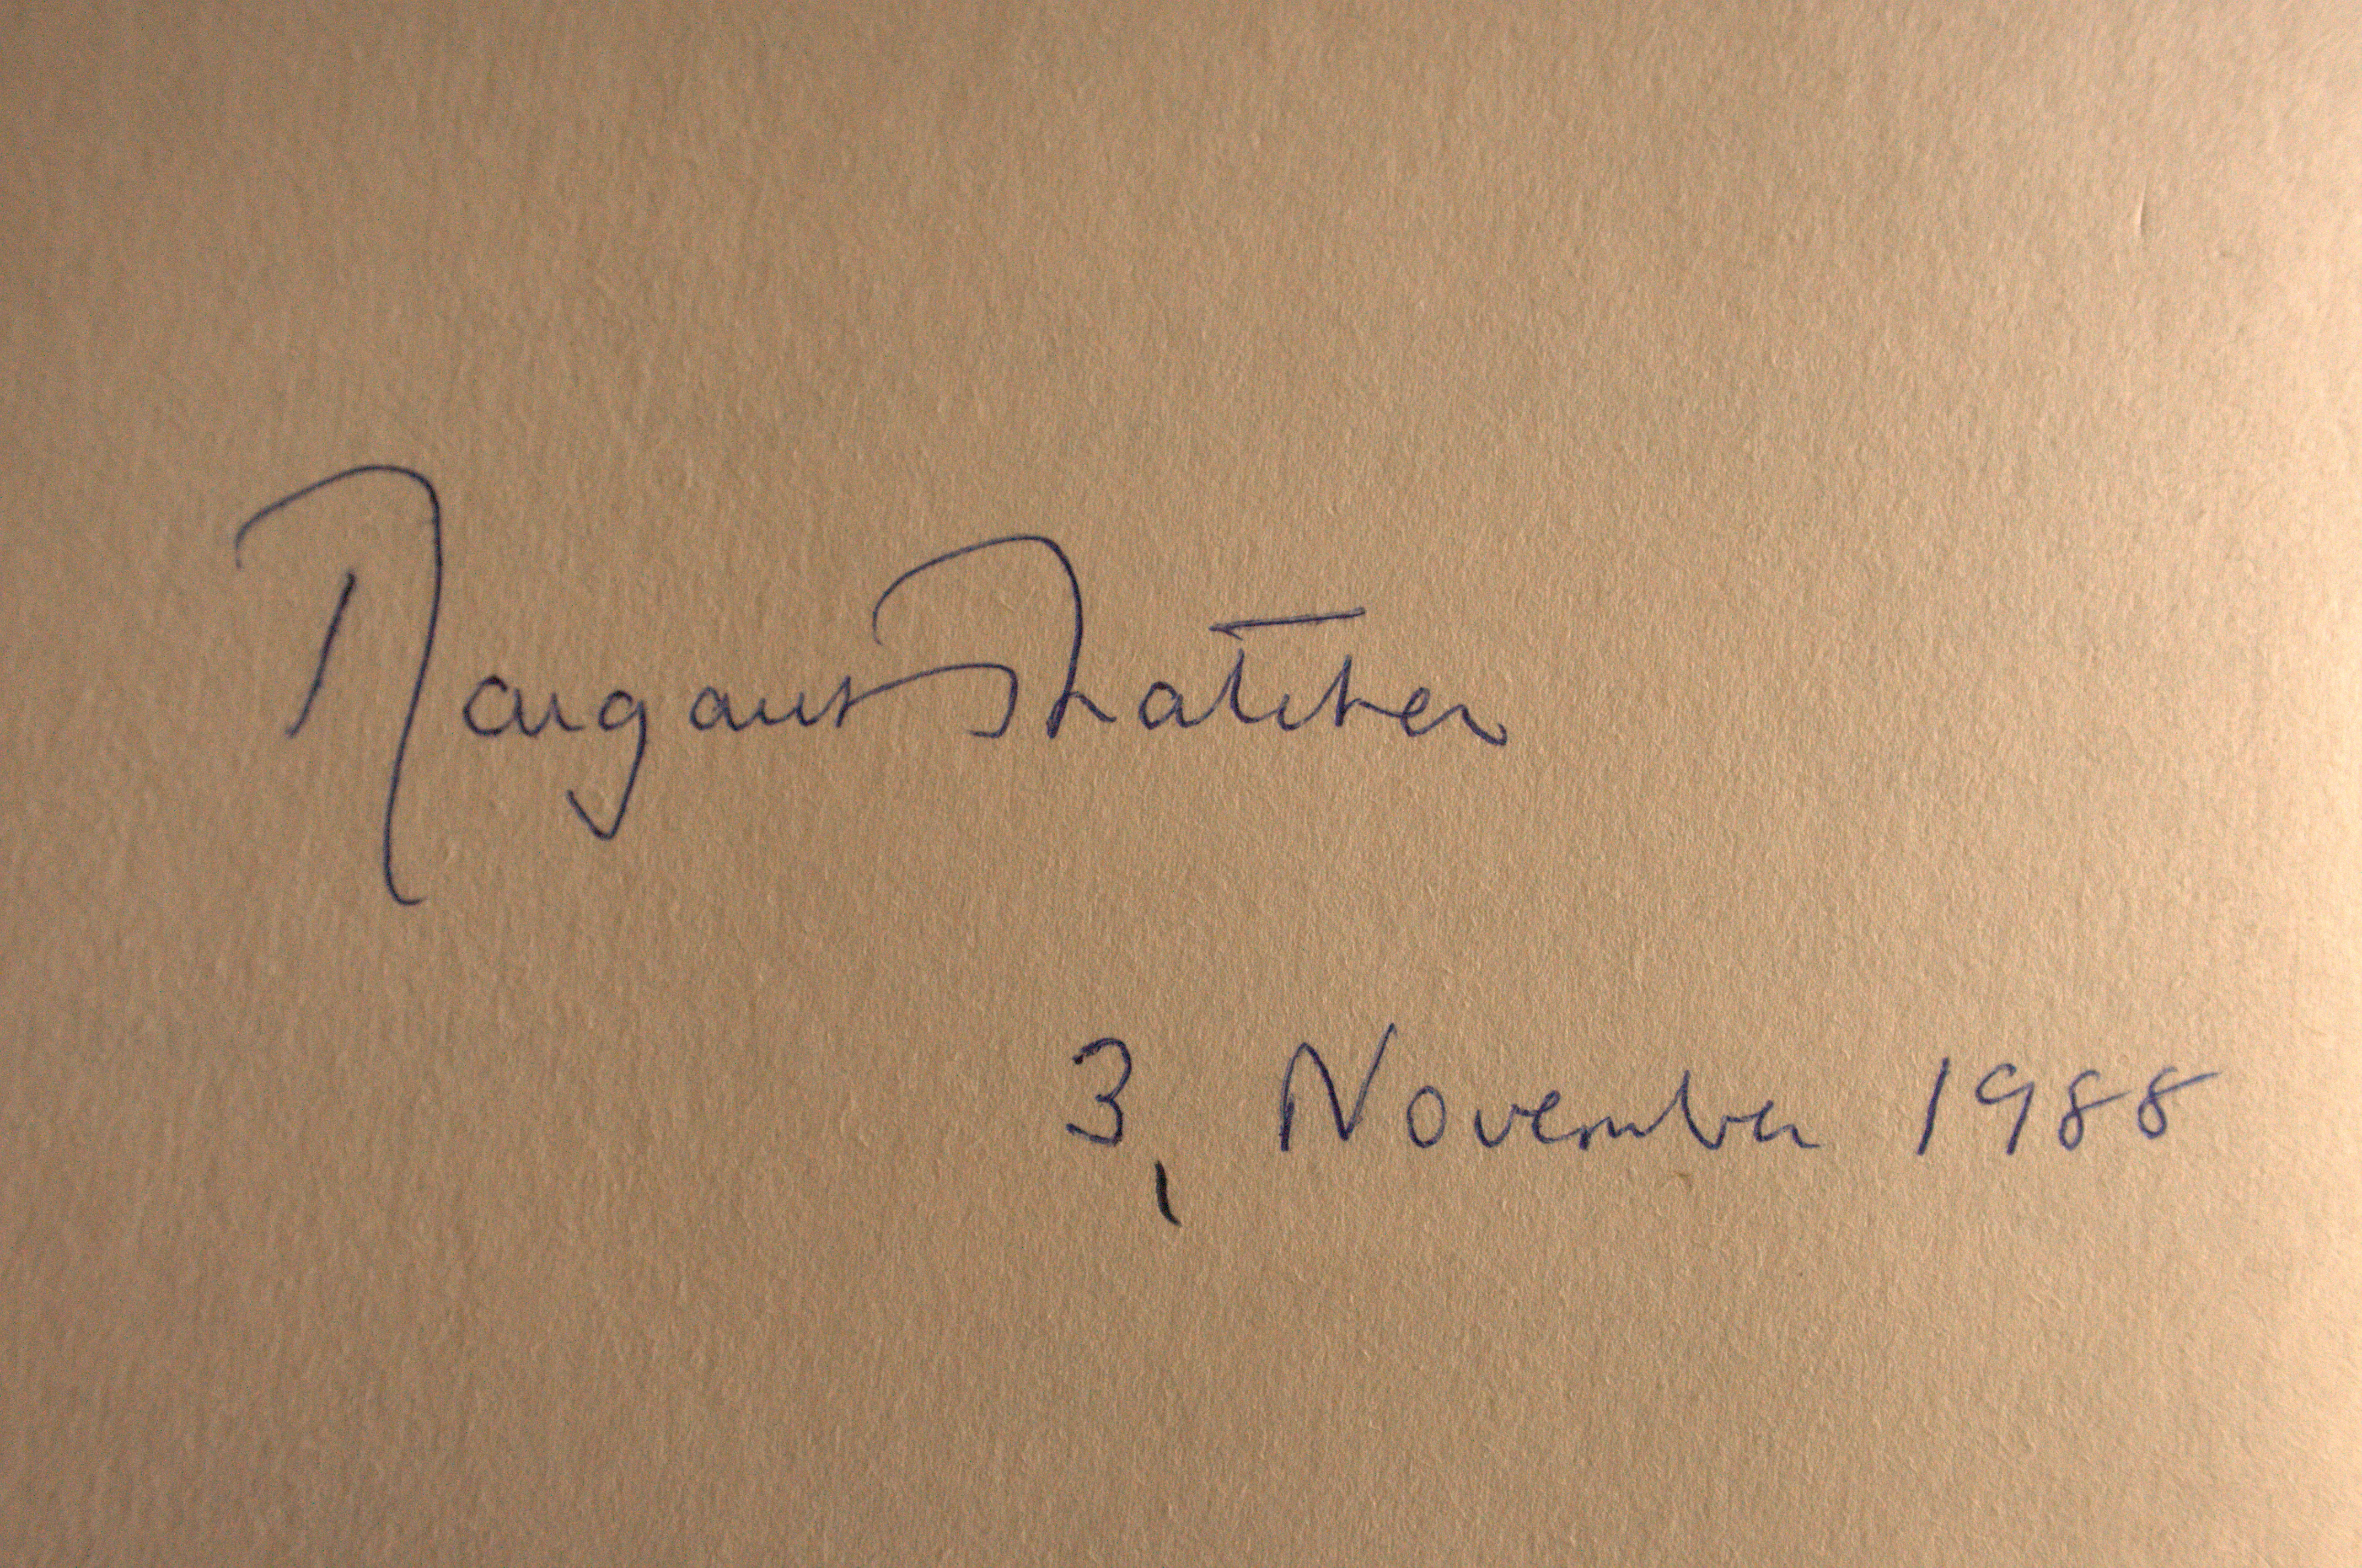 Margaret Thatcher
3, November 1988